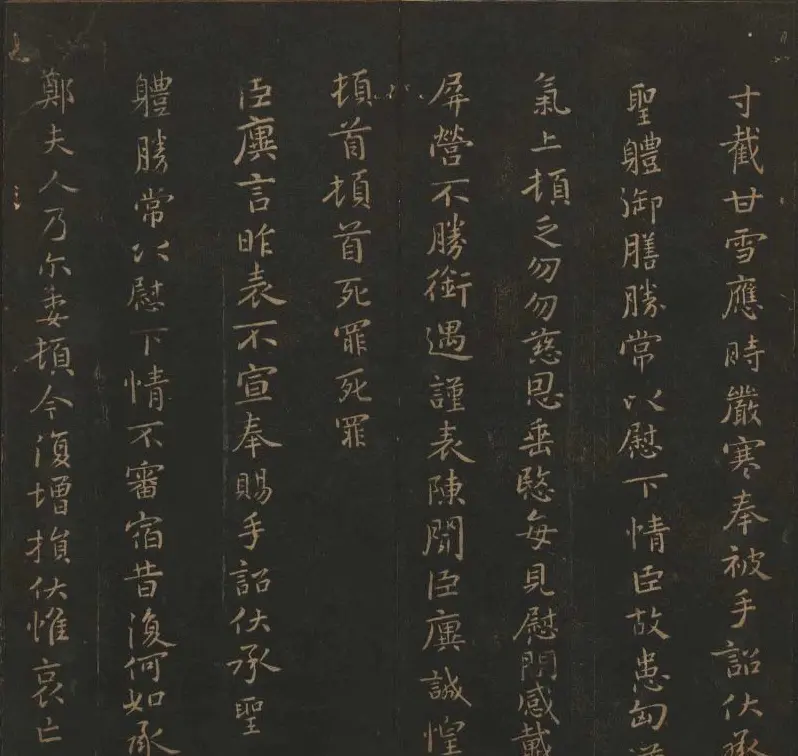 寸截甘雪應時嚴寒奉被手詔伏承
聖體御膳勝常以慰下情臣故患匈
氣上頓乏勿勿慈恩垂愍每見慰問感戴
屏營不勝銜遇謹表陳聞臣廙誠惶
頓首頓首死罪死罪
臣廙言昨表不宣奉賜手詔伏承聖
體勝常以慰下情不審宿昔復何如承
鄭夫人乃尔委頓今復增損伏惟哀亡